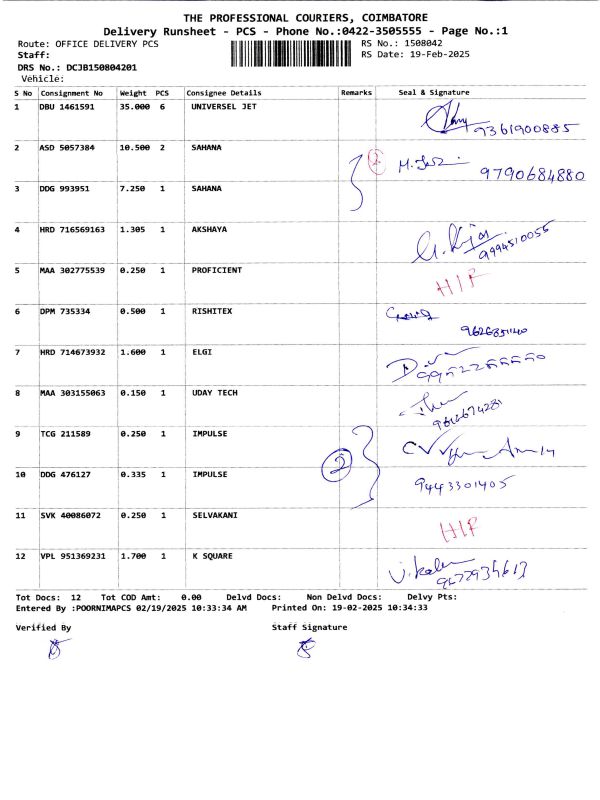 THE PROFESSIONAL COURIERS, COIMBATORE
Delivery Runsheet - PCS - Phone No.:0422-3505555 - Page No.:1
Route: OFFICE DELIVERY PCS RS No.: 1508042
Staff: RS Date: 19-Feb-2025
DRS No.: DCJB150804201
Vehicle:
S No Consignment No Weight PCS Consignee Details Remarks Seal & Signature
1 DBU 1461591 35.000 6 UNIVERSEL JET
9361900885
2 ASD 5057384 10.500 2 SAHANA 2
9790684880
3 DDG 993951 7.250 1 SAHANA
4 HRD 716569163 1.305 1 AKSHAYA
9994510055
5 MAA 302775539 0.250 1 PROFICIENT HIF
6 DPM 735334 0.500 1 RISHITEX
7 HRD 714673932 1.600 1 ELGI
8 MAA 303155063 0.150 1 UDAY TECH
9 TCG 211589 0.250 1 IMPULSE
2
10 DDG 476127 0.335 1 IMPULSE 9443301405
11 SVK 40086072 0.250 1 SELVAKANI HIF
12 VPL 951369231 1.700 1 K SQUARE
Tot Docs: 12 Tot COD Amt: 0.00 Delvd Docs: Non Delvd Docs: Delvy Pts:
Entered By :POORNIMAPCS 02/19/2025 10:33:34 AM Printed On: 19-02-2025 10:34:33
Verified By Staff Signature